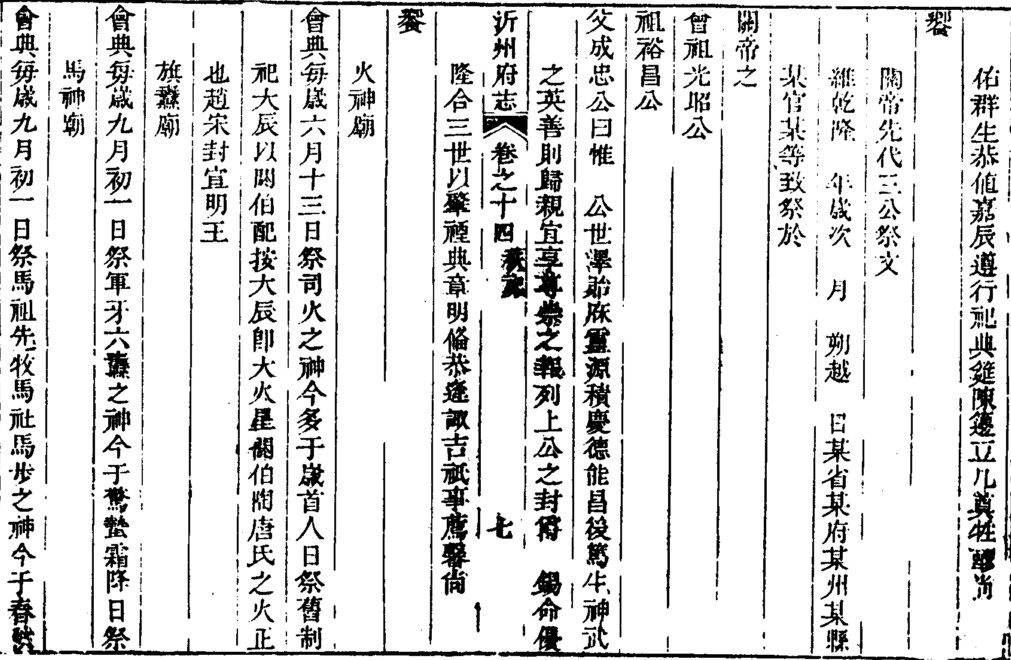 佑群生恭值嘉辰遵行祀典筵陳籩豆几奠牲醪尚
饗
關帝先代三公祭文
維乾隆　年歲次　月　朔越　日某省某府某州某縣
某官某等致祭於
關帝之
曾祖光昭公
祖裕昌公
父成忠公曰惟　公世澤貽庥靈源積慶德能昌後篤生神武
之英善則歸親宜享尊崇之報列上公之封爵　錫命優
沂州府志　卷之十四　秩祀　七
隆合三世以肇禋典章明備恭逢諏吉祇事薦馨尚
饗
火神廟
會典每歲六月十三日祭司火之神今多于歲首人日祭舊制
祀大辰以閼伯配按大辰卽大火星閼伯陶唐氏之火正
也趙宋封宣明王
旗纛廟
會典每歲九月初一日祭軍牙六纛之神今于驚蟄霜降日祭
馬神廟
會典每歲九月初一日祭馬祖先牧馬社馬步之神今于春秋